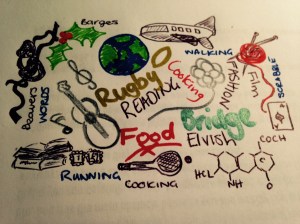 Barges
WALKING
Rugby
READING
Cooking
FASHION
Film
SCRABBLE
WORDS
Food
Bridge
Elvish
RUNNING
COOKING
COCH
HCL
NH